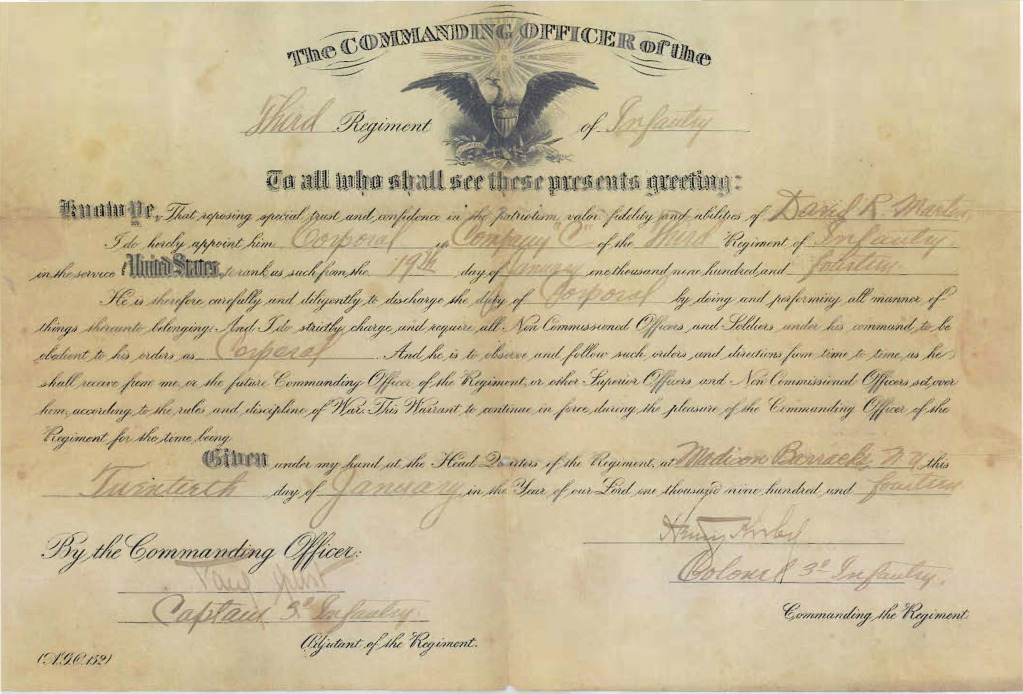 The COMMANDING OFFICER of the
Third Regiment of Infantry
To all who shall see these presents greeting:
Know Ye, That reposing special trust and confidence in the patriotism, valor, fidelity and abilities of David R.
I do hereby appoint him Corporal in Company "C" of the Third Regiment of Infantry
in the service United States, to rank as such from the 19th day of January one thousand nine hundred and fourteen
He is therefore carefully and diligently to discharge the duty of Corporal by doing and performing all manner of
things thereunto belonging. And I do strictly charge and require all Non Commissioned Officers and Soldiers under his command to be
obedient to his orders as Corporal And he is to observe and follow such orders and directions from time to time, as he
shall receive from me, or the future Commanding Officer of the Regiment, or other Superior Officers and Non Commissioned Officers set over
him, according to the rules and discipline of War. This Warrant to continue in force during the pleasure of the Commanding Officer of the
Regiment for the time being.
Given under my hand at the Head Quarters of the Regiment, at Madison Barracks N.Y. this
Twentieth day of January in the Year of our Lord one thousand nine hundred and fourteen
Henry Kirby
By the Commanding Officer:
Colonel 3d Infantry.
Paul
Captain 3d Infantry.
Commanding the Regiment.
Adjutant of the Regiment.
(A.G.O. 152)